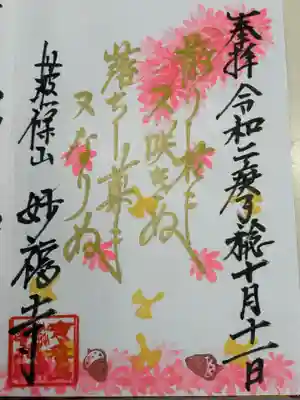 奉拝 令和二庚子稔十月十一日
散りし花も
又咲きぬ
落ちし菓も
又なりぬ
丹波篠山 妙福寺